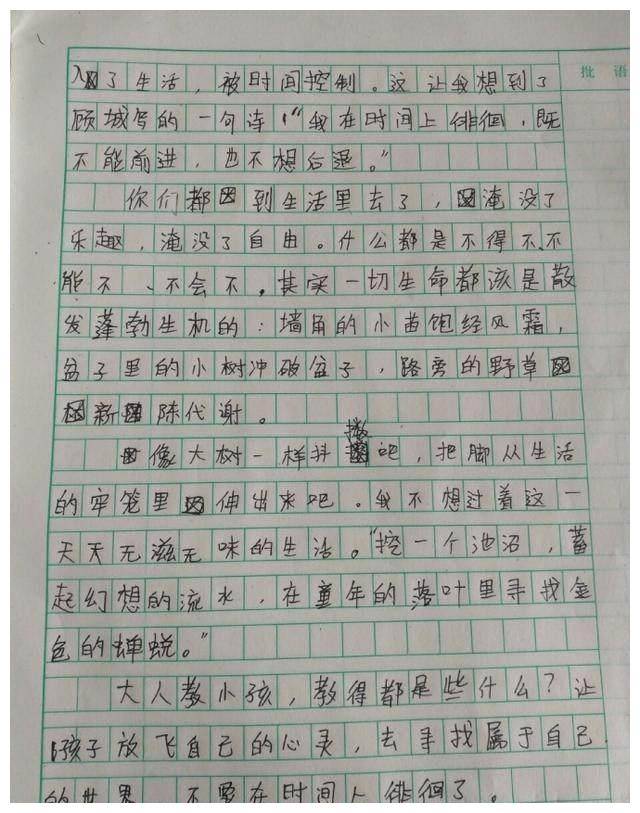 入了生活，被时间控制。这让我想到了
批语
顾城写的一句诗：“我在时间上徘徊，既
不能前进，也不想后退。”
你们都到生活里去了，淹没了
乐趣，淹没了自由。什么都是不得不、不
能不、不会不。其实一切生命都该是散
发蓬勃生机的：墙角的小苗饱经风霜，
盆子里的小树冲破盆子，路旁的野草
新陈代谢。
像大树一样抖擞吧，把脚从生活
的牢笼里伸出来吧。我不想过着这一
天天无滋无味的生活。“挖一个池沼，蓄
起幻想的流水，在童年的落叶里寻找金
色的蝉蜕。”
大人教小孩，教得都是些什么？让
孩子放飞自己的心灵，去寻找属于自己
的世界，不要在时间上徘徊了。